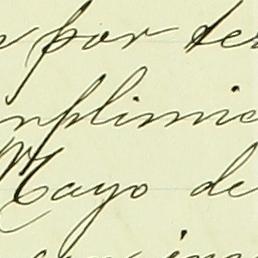 por ter
mplimie
Mayo de